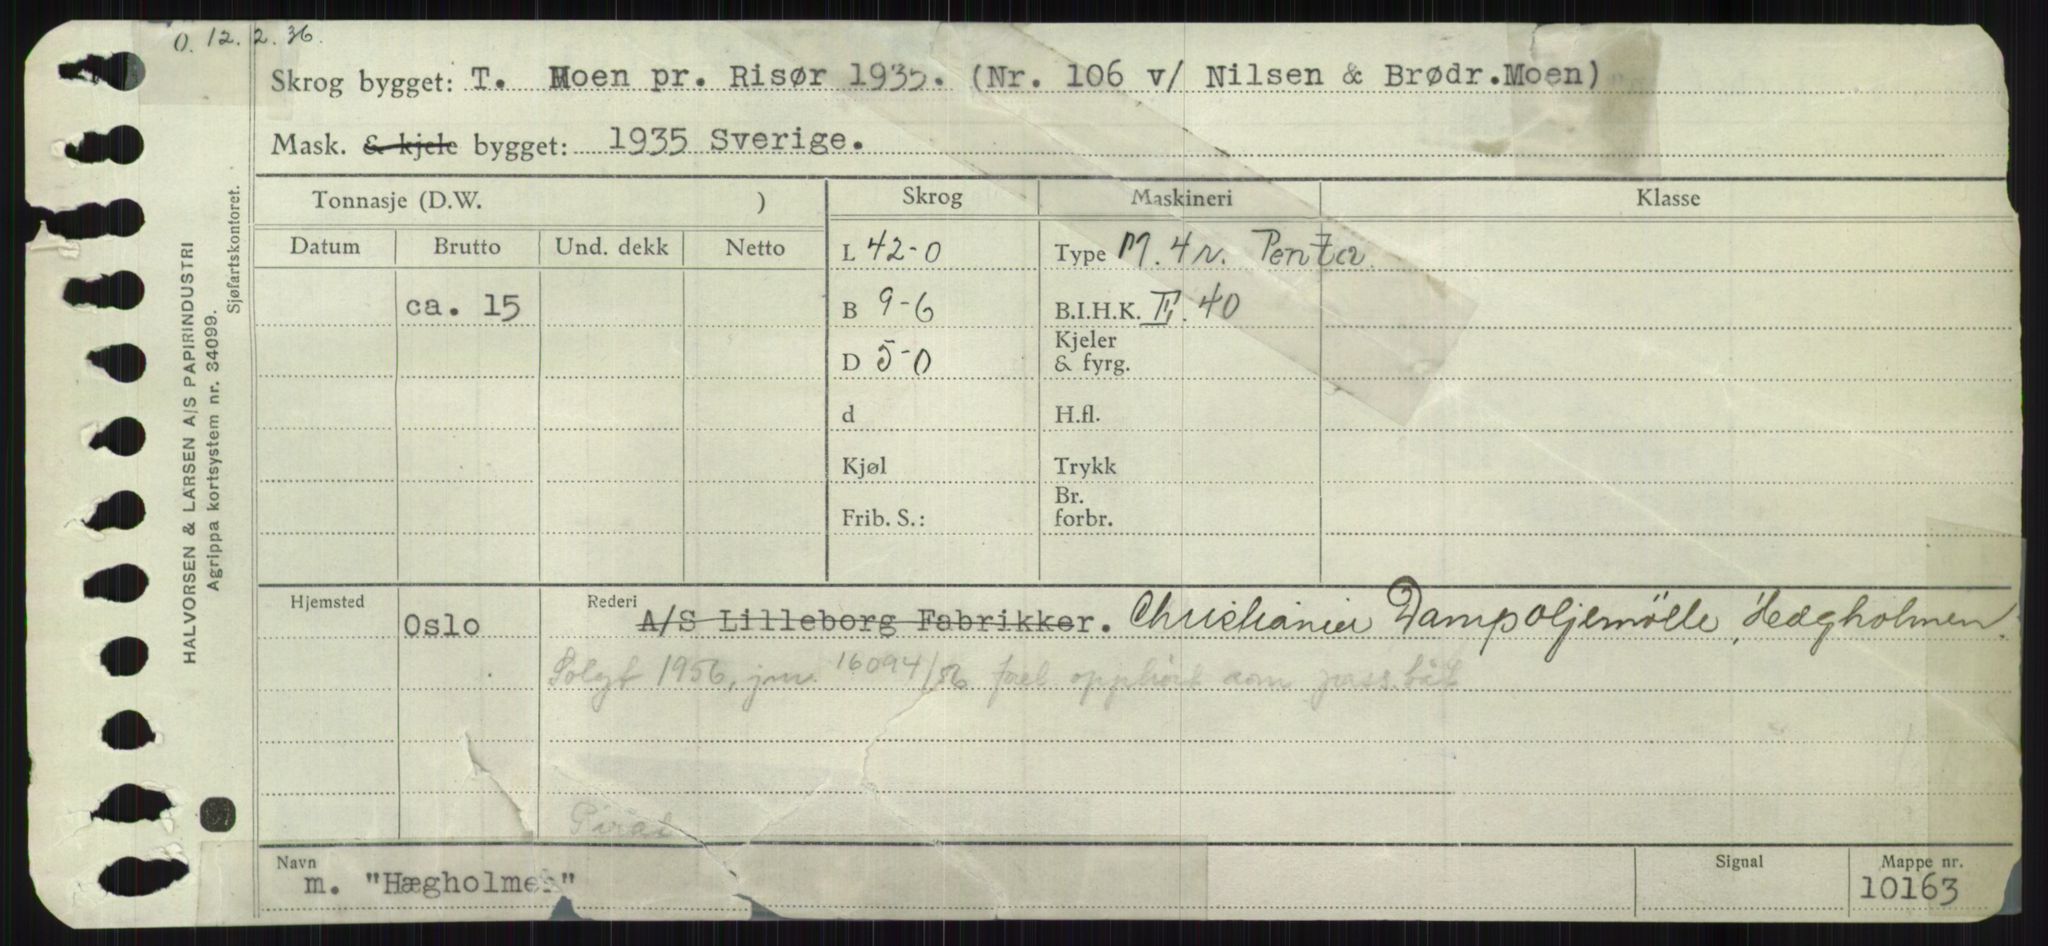 O. 12. 2. 36.
Skrog bygget: T. Moen pr. Risør 1935. (Nr. 106 v/ Nilsen & Brødr.Moen)
Mask. & kjele bygget: 1935 Sverige.
Tonnasje (D.W. ) Skrog Maskineri Klasse
Datum Brutto Und. dekk Netto L 42-0 Type M. 4 r. Penta
ca. 15 B 9-6 B.I.H.K. 40
D 5-0 Kjeler & fyrg.
d H.fl.
Kjøl Trykk
Frib. S.: Br. forbr.
Hjemsted Oslo Rederi A/S Lilleborg Fabrikker. Christiania Dampoljemölle, Hægholmen.
Solgt 1956, jnr. 16094/56 ført opphørt som pass.båt
Pirat
Navn Signal Mappe nr.
m. "Hægholmen" 10163
HALVORSEN & LARSEN A/S PAPIRINDUSTRI
Agrippa kortsystem nr. 34099.
Sjøfartskontoret.